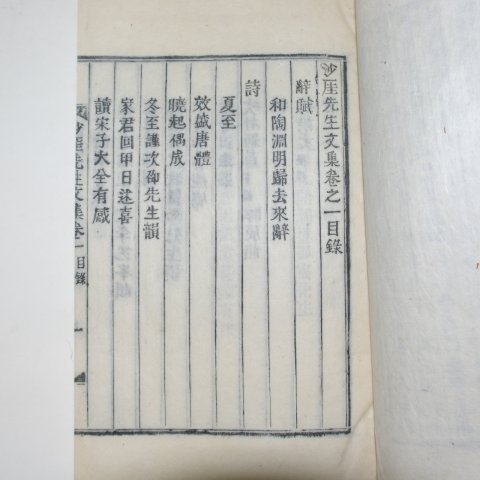 沙厓先生文集卷之一目錄
辭賦
和陶淵明歸去來辭
詩
夏至
效盛唐體
曉起偶成
冬至謹次邵先生韻
家君回甲日述喜
讀宋子大全有感
沙厓先生文集卷一目錄
一